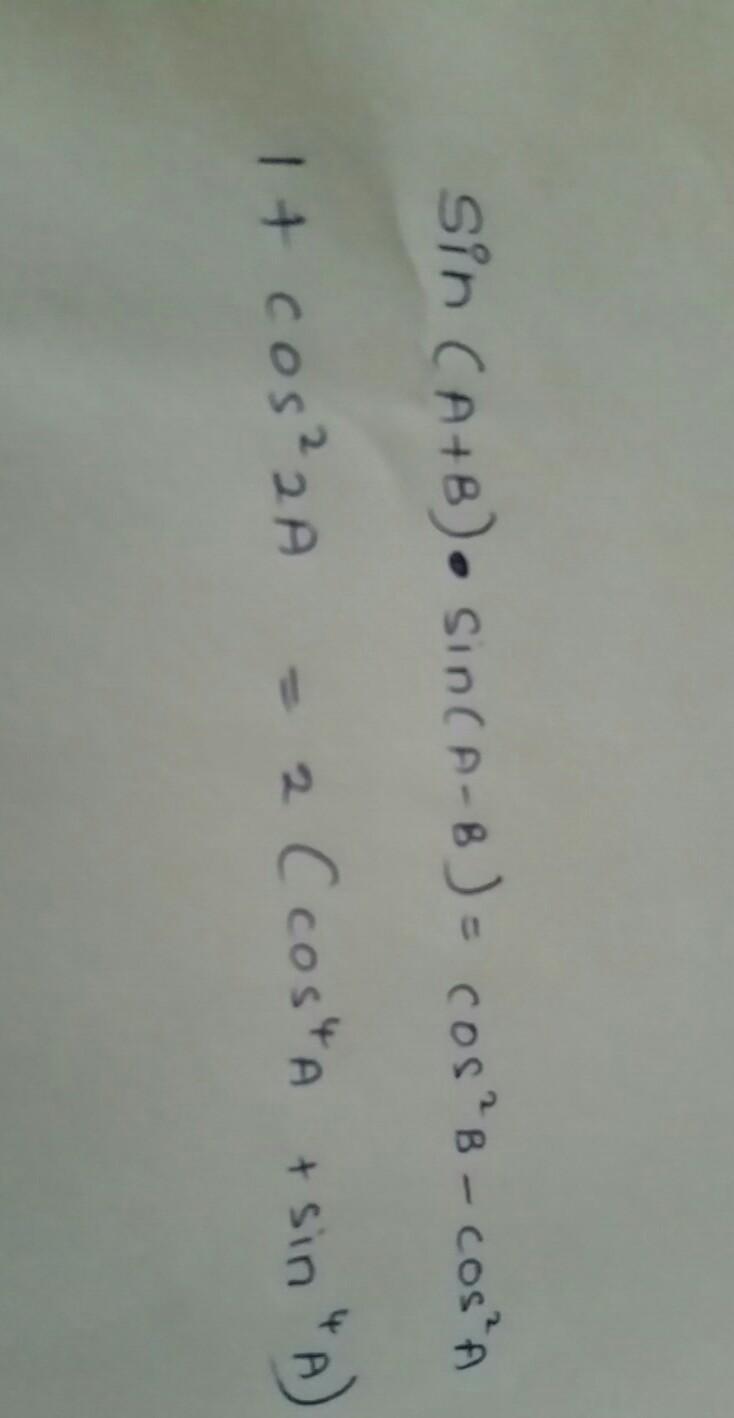 Sin (A+B) • sin(A-B) = cos²B - cos²A
1 + cos²2A = 2 (cos⁴A + sin⁴A)